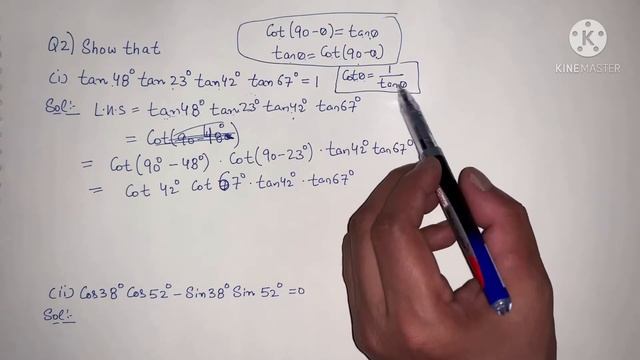 Cot(90-θ) = tanθ
tanθ = Cot(90-θ)
Q2) Show that
(i) tan 48° tan 23° tan 42° tan 67° = 1
Cotθ = 1/tanθ
Sol:- L.H.S = tan48° tan23° tan42° tan67°
= Cot(90-48°)
= Cot(90°-48°) · Cot(90-23°) · tan42° tan67°
= Cot 42° Cot 67° · tan42° · tan67°
(ii) Cos38° Cos52° - Sin38° Sin 52° = 0
Sol:-
KINEMASTER